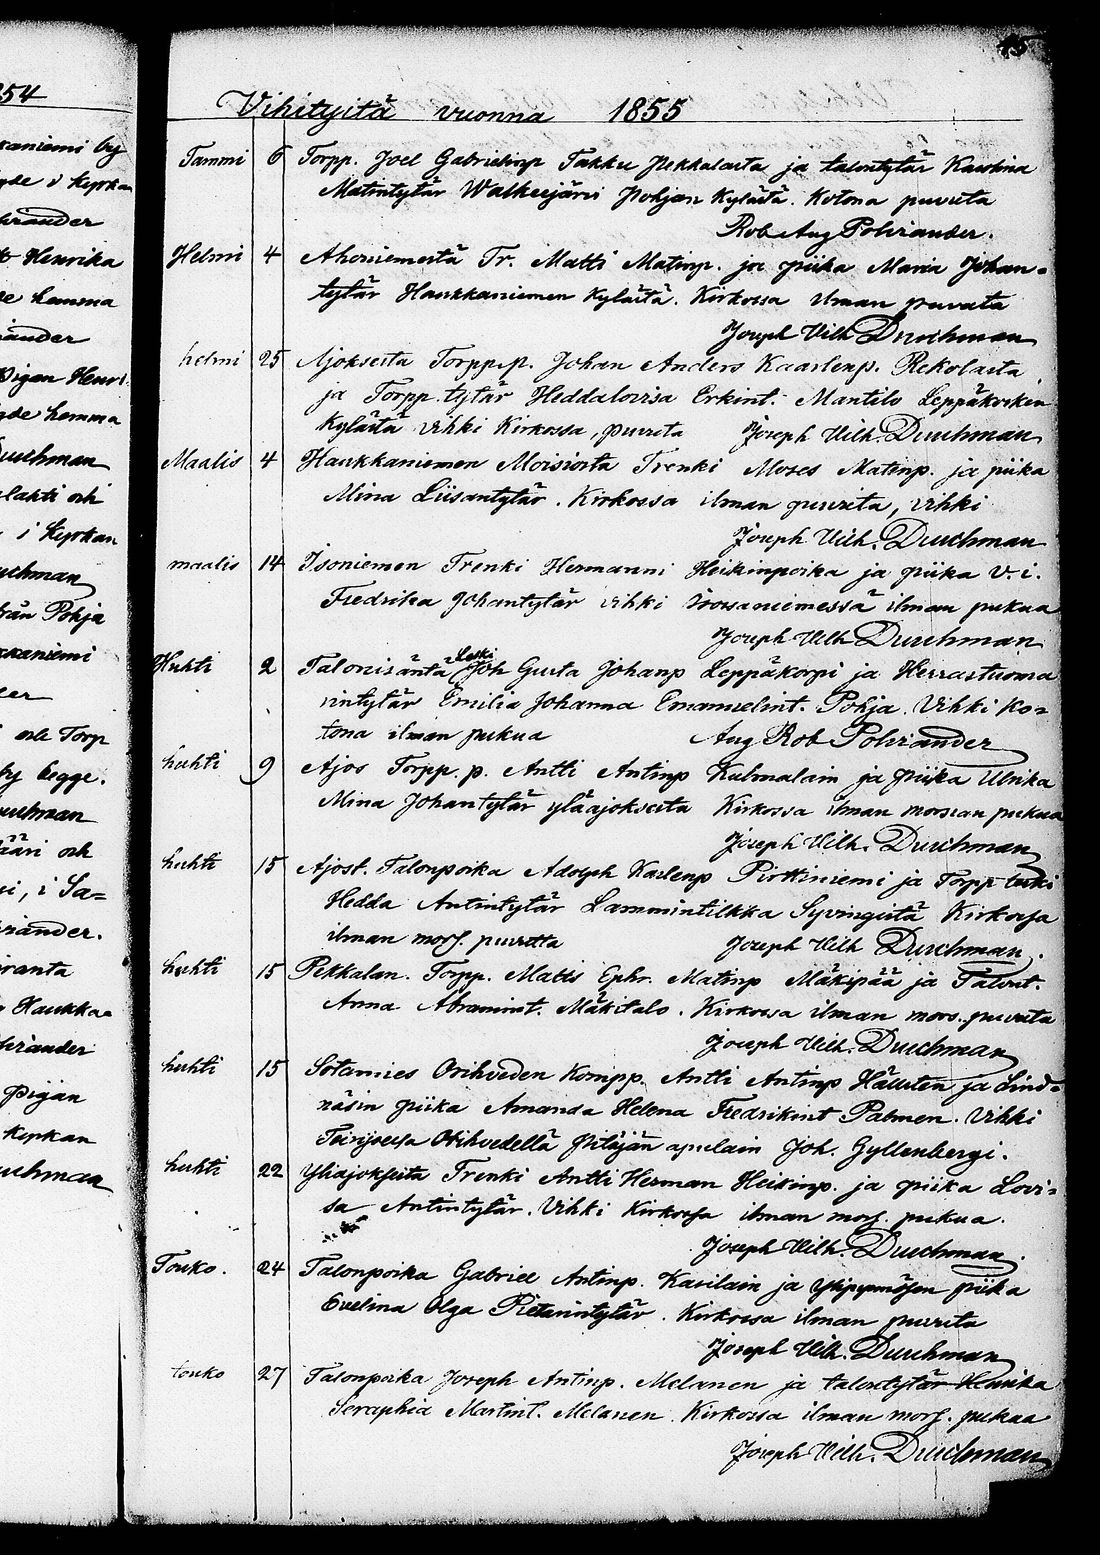 254
kaniemi by
gde i Kepkan
hrander
Henrika
de hamma
iander
Pigan Henri
gde hemma
Durchman
lahti och
i Kepkan
uchman
Pohja
kaniemi
der
och Torp
by begge.
uchman
ääri och
i, i Sa=
riander.
ranta
Haukka=
hriander
Pigan
Kepkan
uchman
45
Vihityitä vuonna 1855
Tammi 6 Torpp. Joel Gabrielinp Takku Pekkalasta ja talontytär Karolina
Matintytär Walkeejärvi Pohjan Kylästä. Kotona puvuta
Rob Aug Pohiander.
Helmi 4 Ahoniemestä Tr. Matti Matinp. ja piika Maria Johan=
tytär Haukkaniemen Kylästä. Kirkossa ilman puvuta
Joseph Vilh Durchman
helmi 25 Ajoksesta Torpp.p. Johan Anders Kaarlenp. Rekolasta
ja Torpp. tytär Heddalovisa Erkint. Mantila Leppäkosken
Kylästä vihki Kirkossa, puvuta Joseph Vilh. Durchman
Maalis 4 Haukkaniemen Moisiosta Trenki Moses Matinp. ja piika
Mina Liisantytär. Kirkossa ilman puvuita, vihki
Joseph Vilh. Durchman
maalis 14 Isoniemen Trenki Hermanni Heikinpoika ja piika v. i.
Fredrika Johantytär vihki ilman pukua
Joseph Vilh Durchman
Huhti 2 Talonisäntä Leski Joh Gusta Johanp Leppäkorpi ja Herrastuoma
rintytär Emilia Johanna Emanuelint. Pohja. Vihki Ko=
tona ilman pukua Aug Rob Pohiander
huhti 9 Ajos Torpp. p. Antti Antinp Kulmalain ja piika Ulrika
Mina Johantytär yläajoksesta Kirkossa ilman morsian pukua
Joseph Vilh. Durchman
huhti 15 Ajost. Talonpoika Adolph Karlenp Pirttiniemi ja Torpp leski
Hedda Antintytär Lammintilkka Syvingistä Kirkossa
ilman mors. puvutta Joseph Vilh Durchman.
huhti 15 Pekkalan. Torpp. Matts Ephr. Matinp Mäkipää ja Talont.
Anna Abramint. Mäkitalo. Kirkossa ilman mors. puvuta
Joseph Vilh. Durchman
huhti 15 Sotamies Orihveden Kompp. Antti Antinp Hällsten ja Lind=
näsin piika Amanda Helena Fredrikint Palmen. Vihki
Orihvedellä Pitäjän apulain Joh. Gyllenbergi.
huhti 22 Yliajoksesta Trenki Antti Herman Heikinp. ja piika Lovi=
sa Antintytär. Vihki Kirkossa ilman mors. pukua.
Joseph Vilh. Durchman.
Touko. 24 Talonpoika Gabriel Antinp. Kasilain ja piika
Evelina Olga Pietarintytär. Kirkossa ilman puvuita
Joseph Vilh. Durchman
touko 27 Talonpoika Joseph Antinp. Melanen ja talontytär Henrika
Seraphia Martint. Melanen. Kirkossa ilman mors. pukua
Joseph Vilh. Durchman